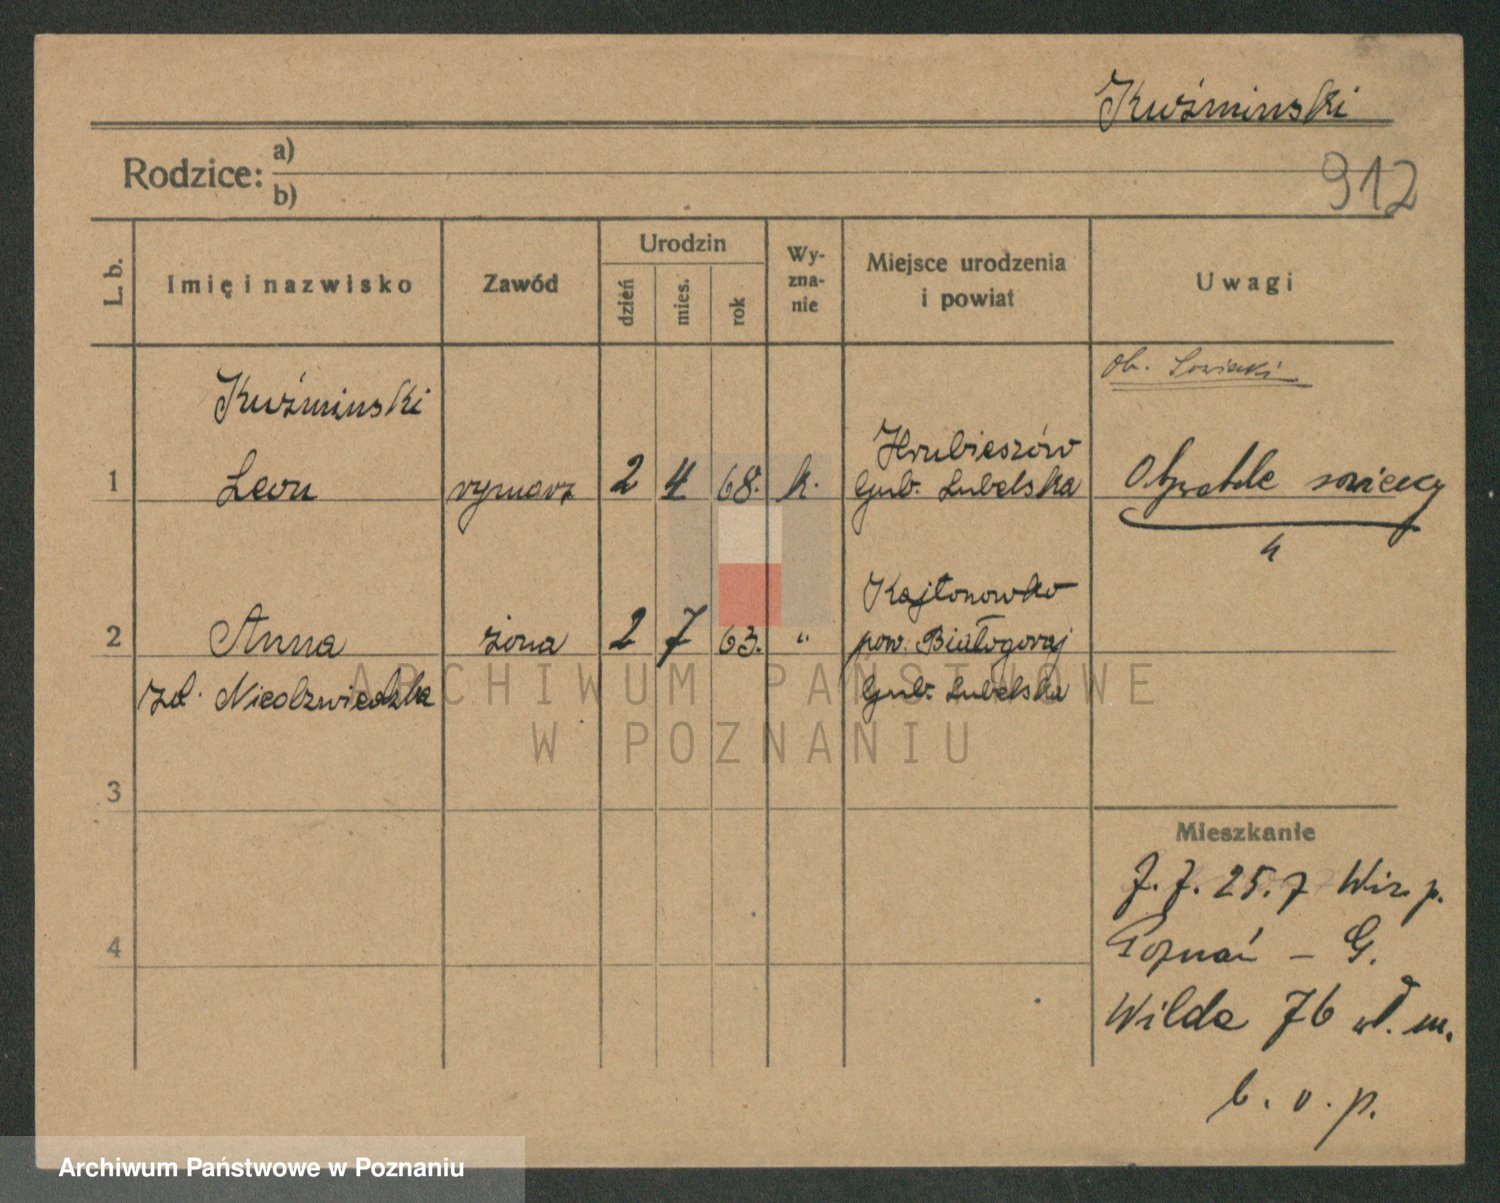 Kuźminski
Rodzice: a)
b)
912
L. b.
Imię i nazwisko
Zawód
Urodzin
dzień
mies.
rok
Wy-
zna-
nie
Miejsce urodzenia
i powiat
Uwagi
Ob. Sowiecki
Kuźminski
1 Leon rymarz 2 4 68. k. Hrubieszów
Gub. Lubelska
sowiecky
2 Anna żona 2 7 63. " Kajtonowko
pow. Białogoraj
zd. Niedzwiedzka Gub. Lubelska
3
Mieszkanie
25.7
Poznań – G.
4
Wilda 76 m.
b. o. p.
ARCHIWUM PAŃSTWOWE
W POZNANIU
Archiwum Państwowe w Poznaniu